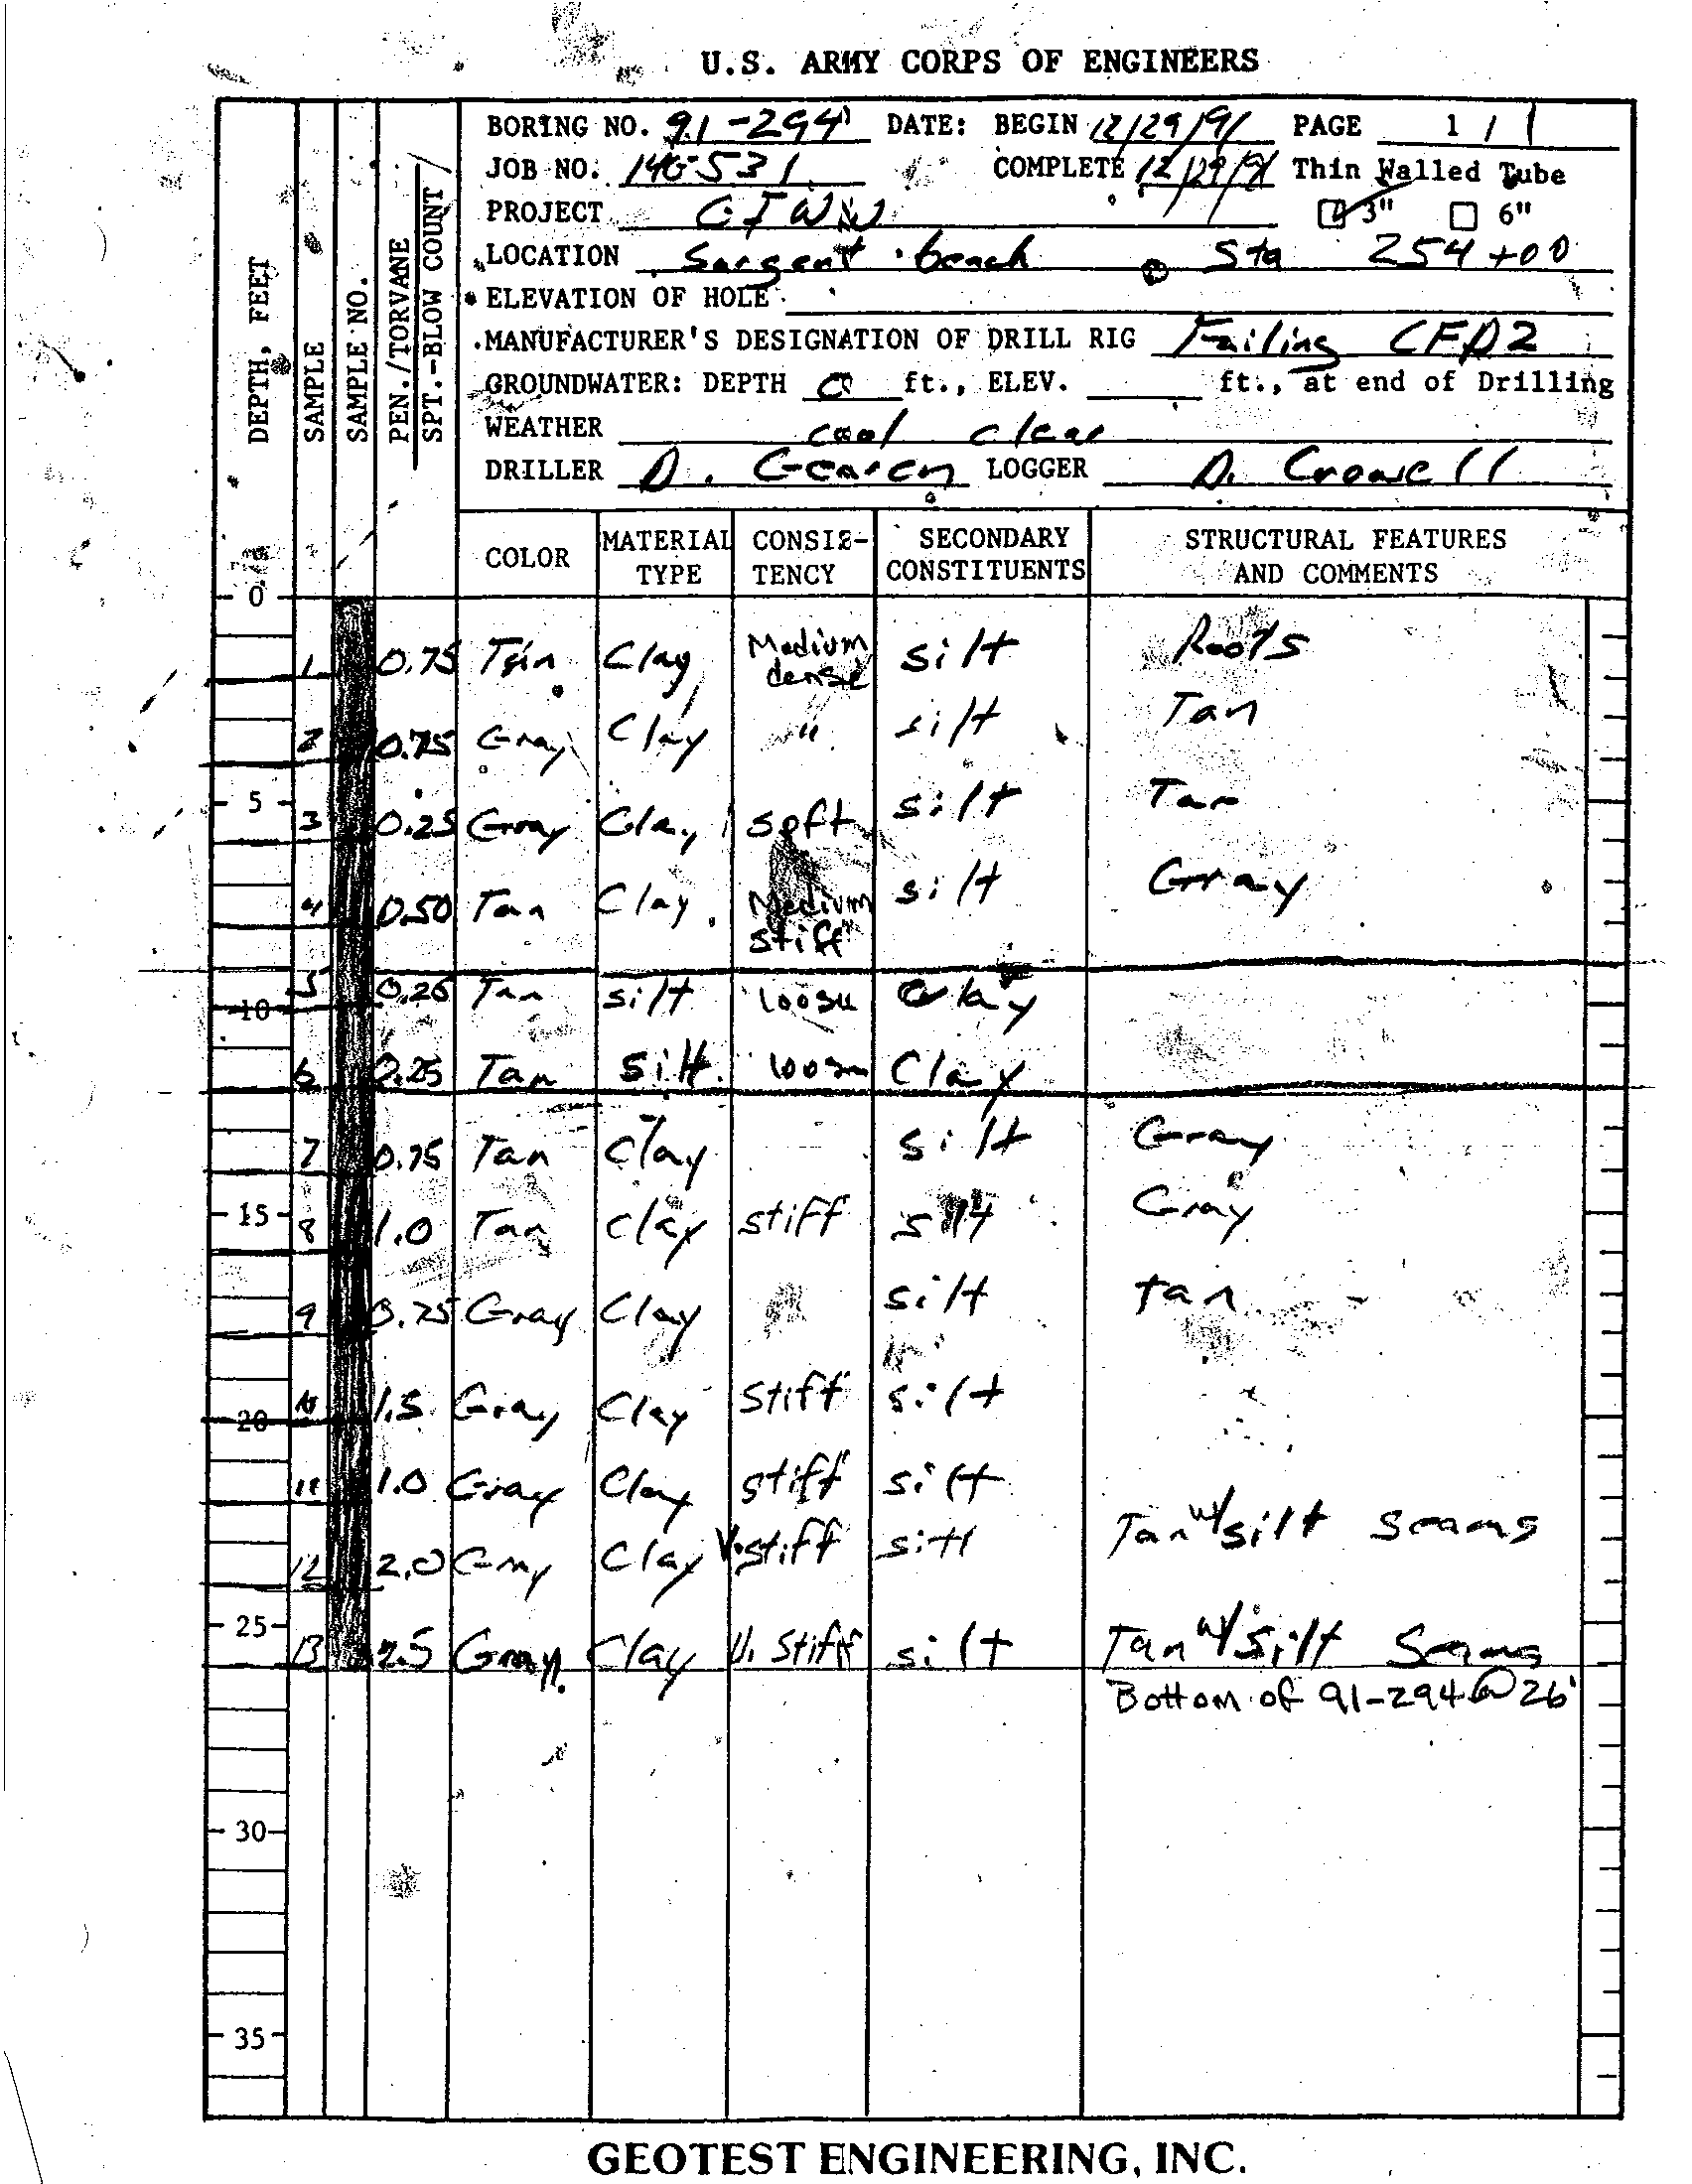 U.S. ARMY CORPS OF ENGINEERS
BORING NO. 91-294 DATE: BEGIN 12/29/91 PAGE 1 / 1
JOB NO. 14G531 COMPLETE 12/29/91 Thin Walled Tube
PROJECT GIWW 3" 6"
LOCATION Sargent beach Sta 254+00
ELEVATION OF HOLE
MANUFACTURER'S DESIGNATION OF DRILL RIG Failing CFD2
GROUNDWATER: DEPTH 0 ft., ELEV. ft., at end of Drilling
WEATHER cool clear
DRILLER D. Gearen LOGGER D. Crowell
DEPTH, FEET
SAMPLE
SAMPLE NO.
PEN./TORVANE
SPT.-BLOW COUNT
COLOR MATERIAL TYPE CONSIS-TENCY SECONDARY CONSTITUENTS STRUCTURAL FEATURES AND COMMENTS
0
1 0.75 Tan Clay Medium dense silt Roots
2 0.75 Gray Clay " silt Tan
5
3 0.25 Gray Clay soft silt Tan
4 0.50 Tan Clay Medium stiff silt Gray
5 0.25 Tan silt loose Clay
10
6 0.25 Tan silt loose Clay
7 0.75 Tan Clay silt Gray
15
8 1.0 Tan Clay stiff silt Gray
9 0.75 Gray Clay silt tan
10 1.5 Gray Clay stiff silt
20
11 1.0 Gray Clay stiff silt
12 2.0 Gray Clay V.stiff silt Tan w/silt seams
25
13 2.5 Gray Clay V. stiff silt Tan w/silt Seams
Bottom of 91-294 @ 26'
30
35
GEOTEST ENGINEERING, INC.